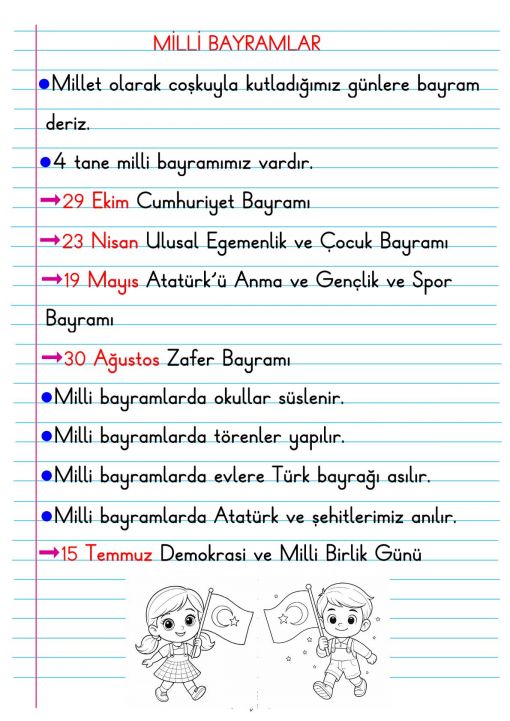 MİLLİ BAYRAMLAR
●Millet olarak coşkuyla kutladığımız günlere bayram
deriz.
●4 tane milli bayramımız vardır.
→29 Ekim Cumhuriyet Bayramı
→23 Nisan Ulusal Egemenlik ve Çocuk Bayramı
→19 Mayıs Atatürk'ü Anma ve Gençlik ve Spor
Bayramı
→30 Ağustos Zafer Bayramı
●Milli bayramlarda okullar süslenir.
●Milli bayramlarda törenler yapılır.
●Milli bayramlarda evlere Türk bayrağı asılır.
●Milli bayramlarda Atatürk ve şehitlerimiz anılır.
→15 Temmuz Demokrasi ve Milli Birlik Günü